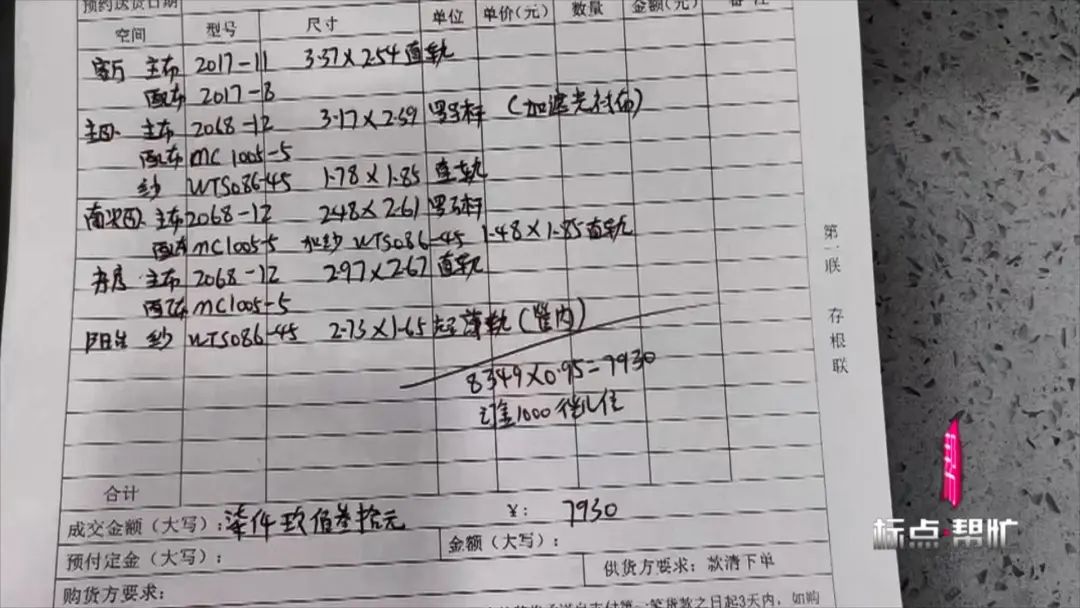 预约送货日期
空间 型号 尺寸 单位 单价(元) 数量 金额(元) 备注
客厅 主布 2017-11 3.37×2.54 直轨
配布 2017-8
主卧 主布 2068-12 3.17×2.59 罗马杆 (加遮光衬布)
配布 MC1005-5
纱 WTS086-45 1.78×1.85 直轨
南次卧 主布 2068-12 2.48×2.61 罗马杆
配布 MC1005-5 加纱 WTS086-45 1.48×1.85 直轨
主布 2068-12 2.97×2.67 直轨
配布 MC1005-5
阳台 纱 WTS086-45 2.73×1.65 超薄轨(筐内)
8349×0.95=7930
1000
合计
成交金额(大写): 柒仟玖佰叁拾元 ¥: 7930
预付定金(大写): 金额(大写):
购货方要求: 供货方要求: 款清下单
第一联 存根联
帮
标点·帮忙